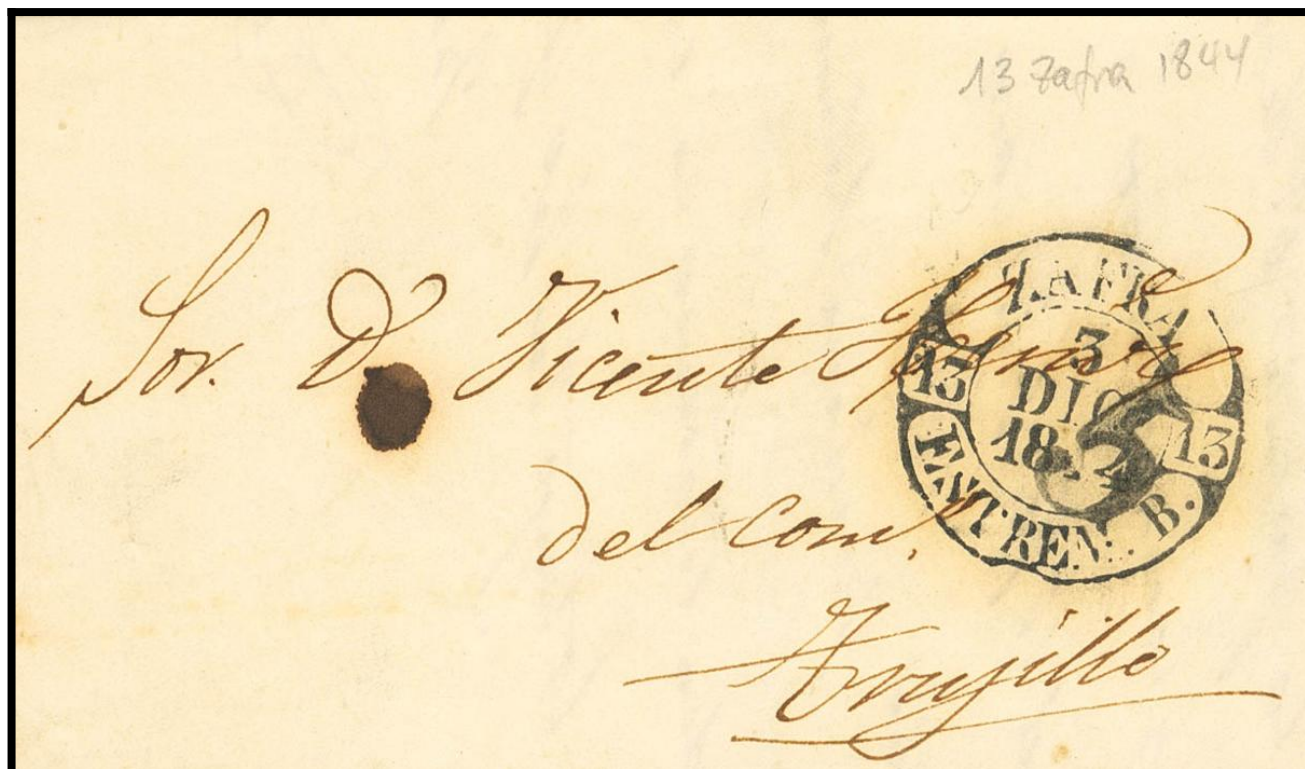 13 Zafra 1844
Sor. Dn. Vicente
del Com.
Trujillo
ZAFRA
3
DIC
18
13
13
ESTREM. B.